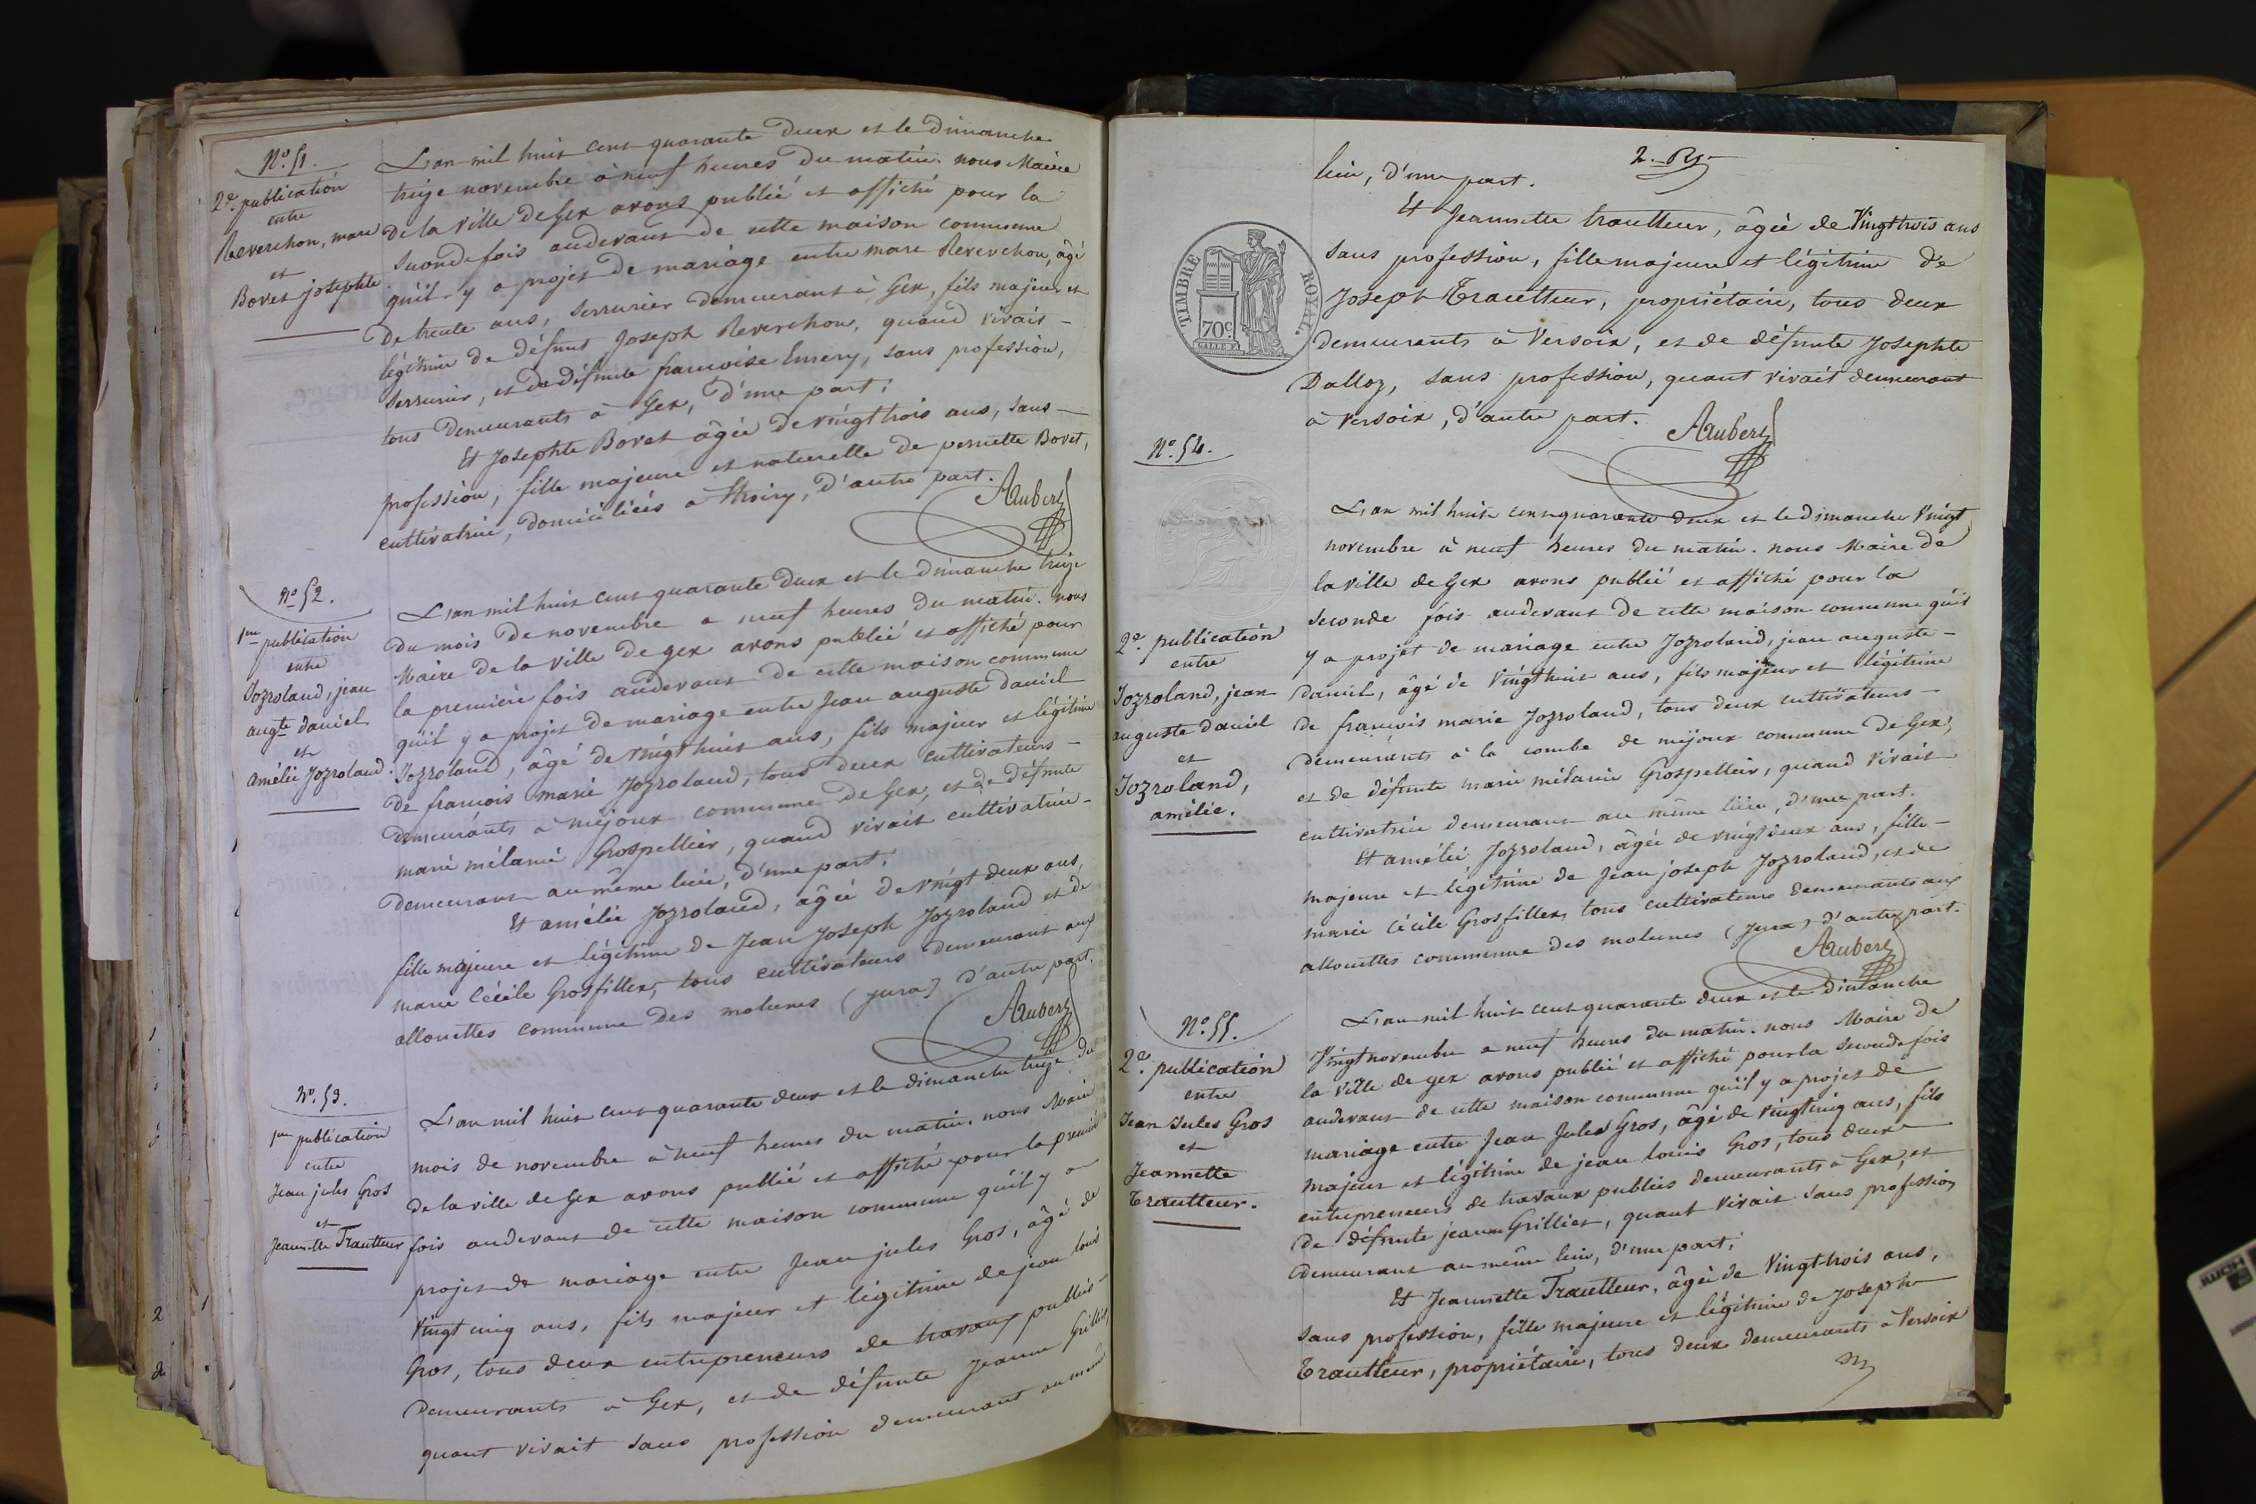 N.º 51.
2.e publication
entre
Reverchon, marc
et
Bovet josephte
L'an mil huit cent quarante deux et le Dimanche
treize novembre à neuf heures du matin. nous Maire
De la ville de Gex avons publié et affiché pour la
seconde fois audevant de cette maison commune
qu'il y a projet de mariage entre marc Reverchon, âgé
de trente ans, serrurier demeurant à Gex, fils majeur et
légitime de défunt Joseph Reverchon, quand vivait
serrurier, et de défunte françoise Emery, sans profession,
tous demeurants à Gex, d'une part;
Et Josephte Bovet âgée de vingt trois ans, sans
profession, fille majeure et naturelle de pernette Bovet,
cultivatrice, domiciliées à Thoiry, d'autre part.
Aubert
N.º 52.
1re publication
entre
Jozroland, jean
augte daniel
et
amélie Jozroland
L'an mil huit cent quarante deux et le dimanche treize
du mois de novembre a neuf heures du matin. nous
Maire de la ville de gex avons publié et affiché pour
la première fois audevant de cette maison commune
qu'il y a projet de mariage entre Jean auguste daniel
Jozroland, âgé de vingt huit ans, fils majeur et légitime
de francois marie Jozroland, tous deux cultivateurs
demeurants à mijoux commune de Gex, et de défunte
marie mélanie Grospellier, quand vivait cultivatrice
demeurant au même lieu, d'une part.
Et amélie Jozroland, âgée de vingt deux ans,
fille majeure et légitime de Jean Joseph Jozroland et de
marie Cécile Grosfillex, tous cultivateurs demeurant aux
allouettes commune des molunes (jura) d'autre part.
Aubert
N.º 53.
1re publication
entre
Jean jules Gros
et
Jeannette Trautteur
L'an mil huit cent quarante deux et le dimanche treize du
mois de novembre à neuf heures du matin. nous Maire
de la ville de Gex avons publié et affiché pour la première
fois audevant de cette maison commune qu'il y a
projet de mariage entre Jean jules Gros, âgé de
vingt cinq ans, fils majeur et légitime de jean louis
Gros, tous deux entrepreneurs de travaux publics
demeurants à Gex, et de défunte Jeanne Grilliet,
quant vivait sans profession demeurant au même
lieu, d'une part.
Et Jeannette trautteur, âgée de Vingt trois ans
sans profession, fille majeure et légitime de
Joseph Trautteur, propriétaire, tous deux
demeurants à Versoix, et de défunte Josephte
Dalloz, sans profession, quant vivait demeurant
à Versoix, d'autre part.
Aubert
TIMBRE ROYAL.
70c
N.º 54.
2.e publication
entre
Jozroland, jean
auguste daniel
et
Jozroland,
amélie.
L'an mil huit cent quarante deux et le dimanche Vingt
novembre à neuf heures du matin. nous Maire de
la ville de Gex avons publié et affiché pour la
seconde fois audevant de cette maison commune qu'il
y a projet de mariage entre Jozroland, jean auguste
daniel, âgé de vingt huit ans, fils majeur et légitime
de francois marie Jozroland, tous deux cultivateurs
demeurants à la combe de mijoux commune de Gex,
et de défunte marie mélanie Grospellier, quand vivait
cultivatrice demeurant au même lieu, d'une part.
Et amélie Jozroland, âgée de vingt deux ans, fille
majeure et légitime de Jean joseph Jozroland, et de
marie Cécile Grosfillex, tous cultivateurs demeurants aux
allouettes commune des molunes (Jura) d'autre part.
Aubert
N.º 55.
2.e publication
entre
Jean Jules Gros
et
Jeannette
Trautteur.
L'an mil huit cent quarante deux et le dimanche
Vingt novembre a neuf heures du matin. nous Maire de
la ville de gex avons publié et affiché pour la seconde fois
audevant de cette maison commune qu'il y a projet de
mariage entre Jean Jules Gros, âgé de vingt cinq ans, fils
majeur et légitime de jean louis Gros, tous deux
entrepreneurs de travaux publics demeurants à Gex, et
de défunte jeanne Grilliet, quant vivait sans profession
demeurant au même lieu, d'une part;
Et Jeannette Trautteur, âgée de Vingt-trois ans,
sans profession, fille majeure et légitime de Joseph
Trautteur, propriétaire, tous deux demeurants à Versoix